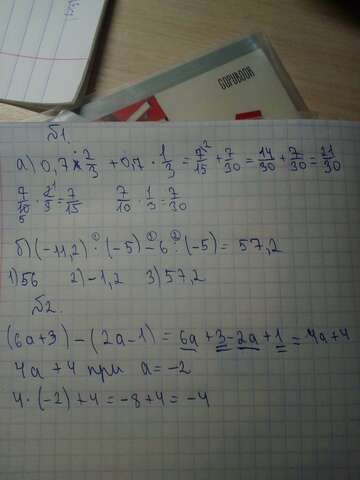 COPYBOOK
№1.
а) 0,7 · 2/3 + 0,7 · 1/3 = 7/15 + 7/30 = 14/30 + 7/30 = 21/30
7/10 · 2/3 = 7/15 7/10 · 1/3 = 7/30
б) (-11,2) · (-5) - 6 : (-5) = 57,2
1) 56 2) -1,2 3) 57,2
№2.
(6a+3) - (2a-1) = 6a + 3 - 2a + 1 = 4a+4
4a + 4 при a = -2
4 · (-2) + 4 = -8 + 4 = -4